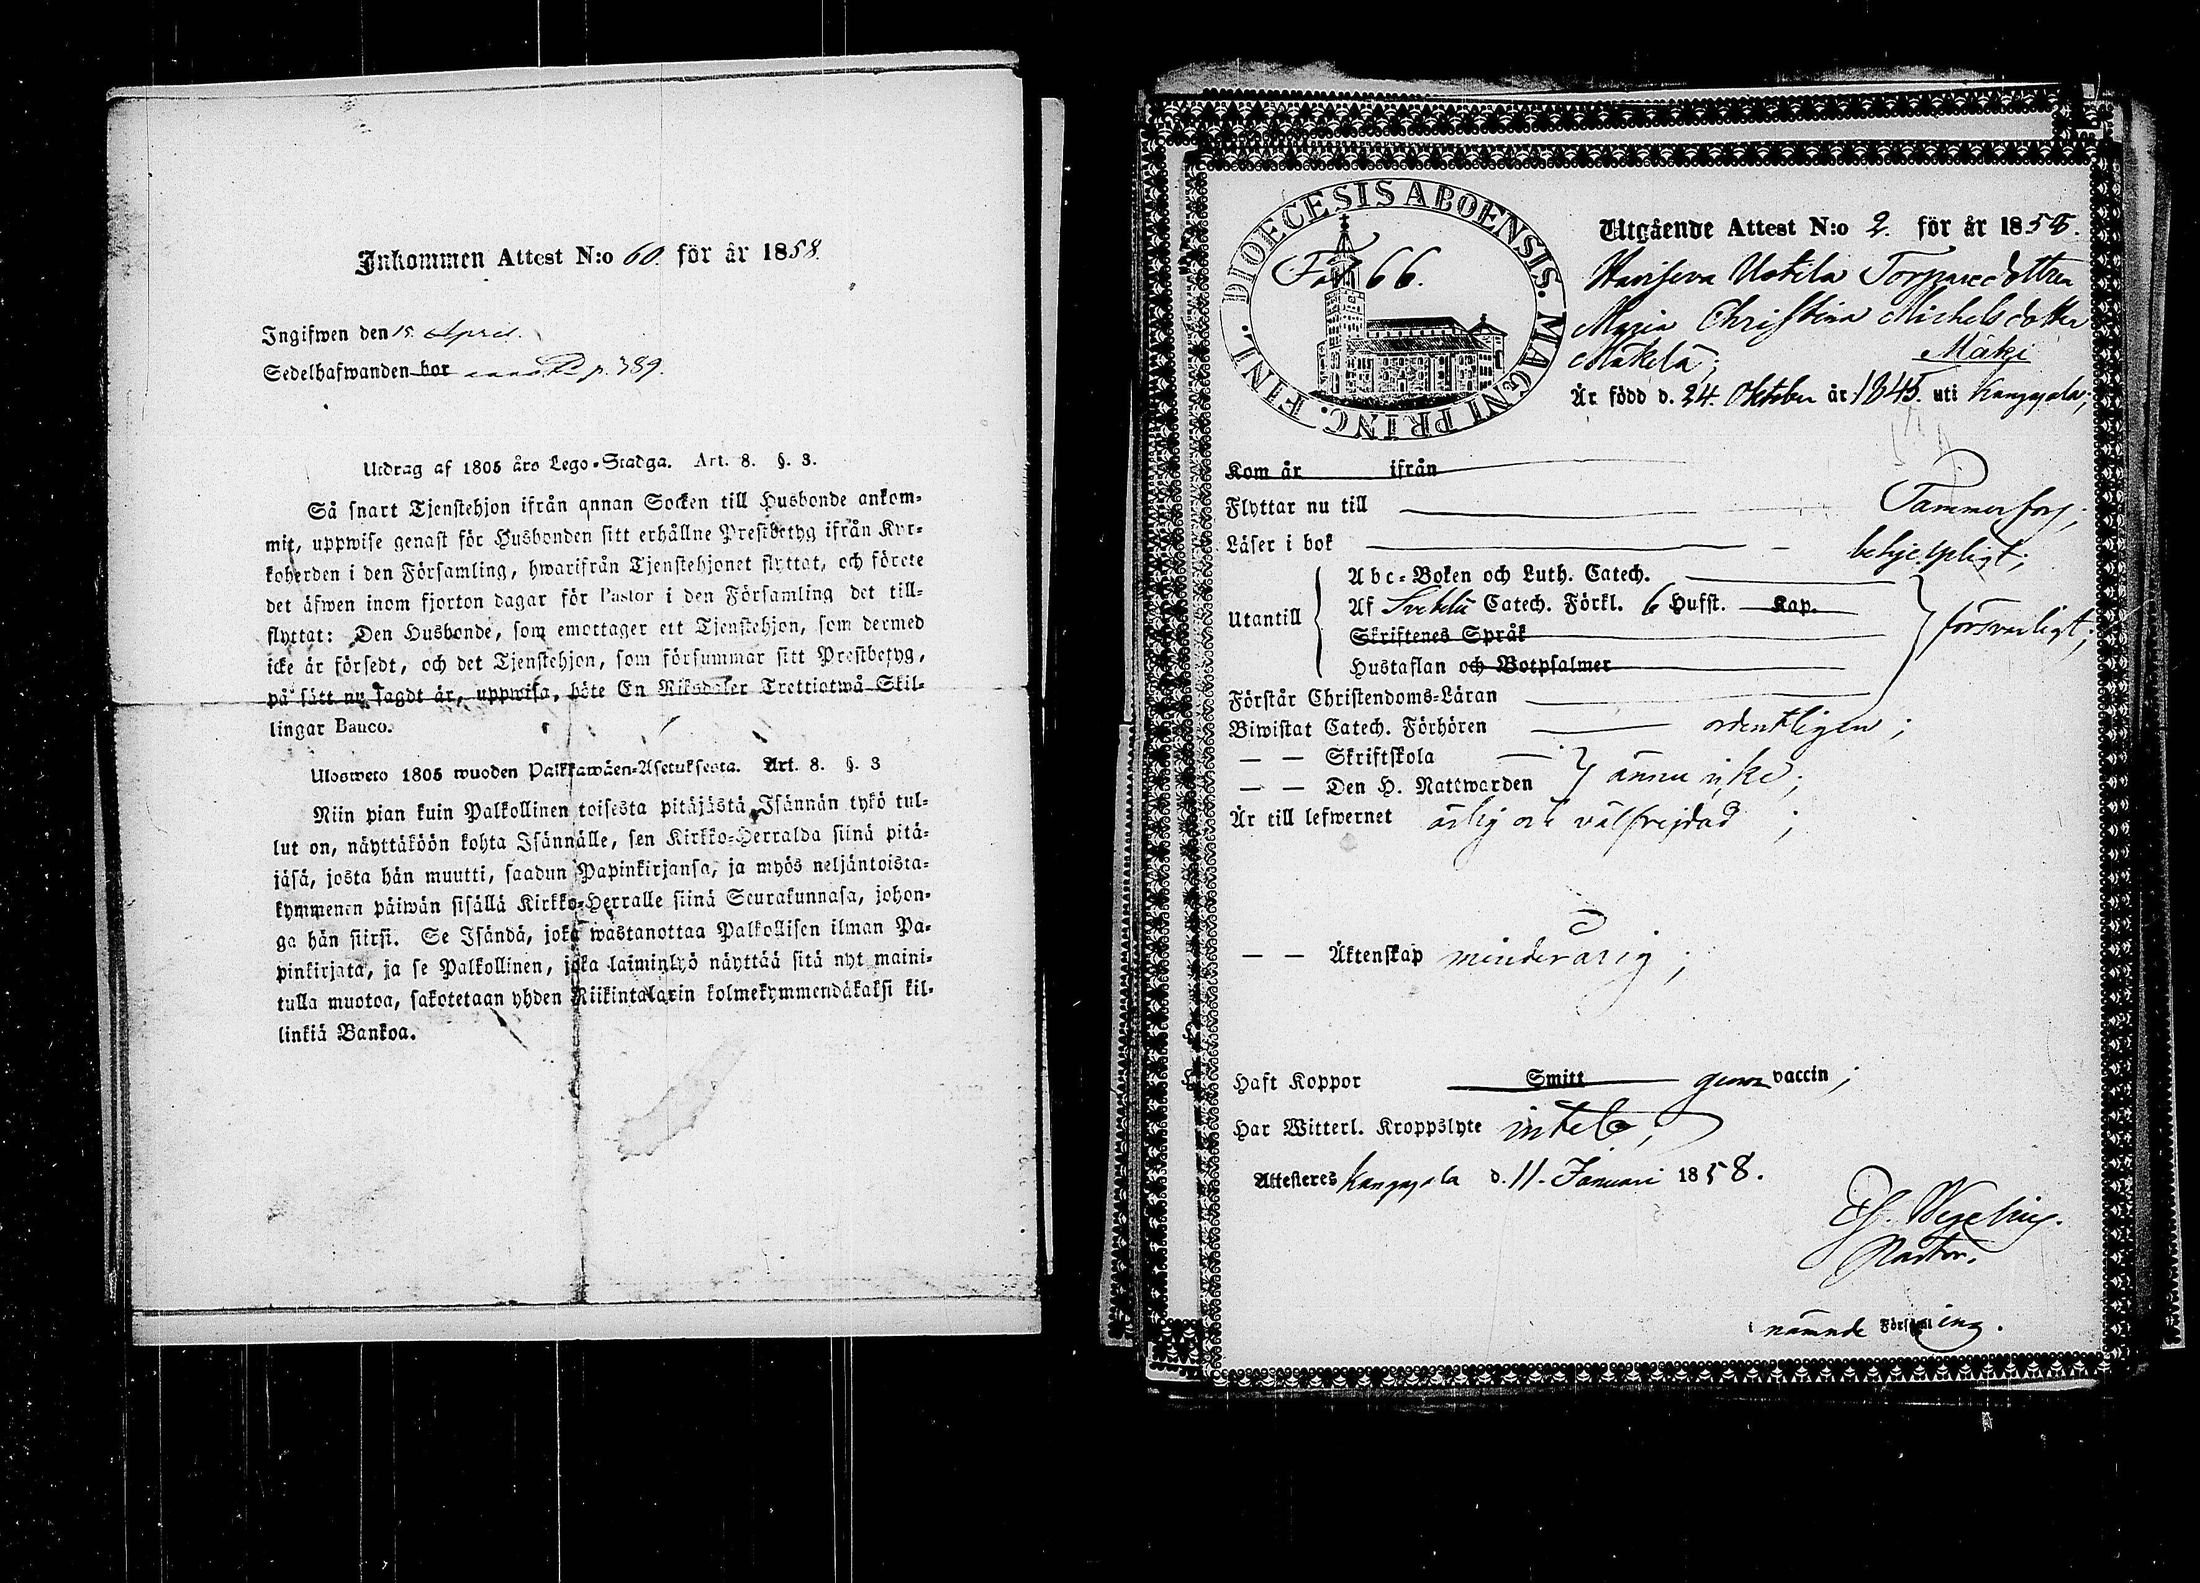 Inkommen Attest N:o 60. för år 1858.
Ingifwen den 15. April.
Sedelhafwanden bor p. 389.
Utdrag af 1805 års Lego-Stadga. Art. 8. §. 3.
Så snart Tjenstehjon ifrån annan Socken till Husbonde ankom-
mit, uppwise genast för Husbonden sitt erhållne Prestbetyg ifrån Kyr-
koherden i den Församling, hwarifrån Tjenstehjonet flyttat, och förete
det äfwen inom fjorton dagar för Pastor i den Församling det till-
flyttat: Den Husbonde, som emottager ett Tjenstehjon, som dermed
icke är försedt, och det Tjenstehjon, som försummar sitt Prestbetyg,
på sätt nu sagdt är, uppwisa, böte En Riksdaler Trettiotwå Skil-
lingar Banco.
Ulosweto 1805 wuoden Palkkawäen-Asetuksesta. Art. 8. §. 3
Niin pian kuin Palkollinen toisesta pitäjästä Isännän tykö tul-
lut on, näyttäköön kohta Isännälle, sen Kirkko-Herralda siinä pitä-
jäsä, josta hän muutti, saadun Papinkirjansa, ja myös neljäntoista-
kymmenen päiwän sisällä Kirkko-Herralle siinä Seurakunnasa, johon-
ga hän siirsi. Se Isändä, joka wastanottaa Palkollisen ilman Pa-
pinkirjata, ja se Palkollinen, joka laiminlyö näyttää sitä nyt maini-
tulla muotoa, sakotetaan yhden Riikintalarin kolmekymmendäkaksi kil-
linkiä Bankoa.
DIOECESIS ABOENSIS. MAGNI PRINC. FINL.
Fol 66.
Utgående Attest N:o 2. för år 1858.
Uotila Torparedottren
Maria Christina Michelsdotter
Mäkelä, Mäki
Är född d. 24. Oktober år 1845. uti Kangasala;
Kom år ifrån
Flyttar nu till Tammerfors;
Läser i bok behjelpligt;
Utantill
Abc-Boken och Luth. Catech.
Af Svebelii Catech. Förkl. 6 Hufst. Kap.
Skriftenes Språk
Hustaflan och Botpsalmer
försvarligt;
Förstår Christendoms-Läran
Biwistat Catech. Förhören ordentligen;
— — Skriftskola
— — Den H. Nattwarden ännu icke;
Är till lefwernet ärlig och välfrejdad;
— — Äktenskap minderårig;
Haft Koppor Smitt genom vaccin;
Har Witterl. Kroppslyte intet;
Attesteres Kangasala d. 11. Januari 1858.
Wegelius.
Pastor.
i nämnde Församling.